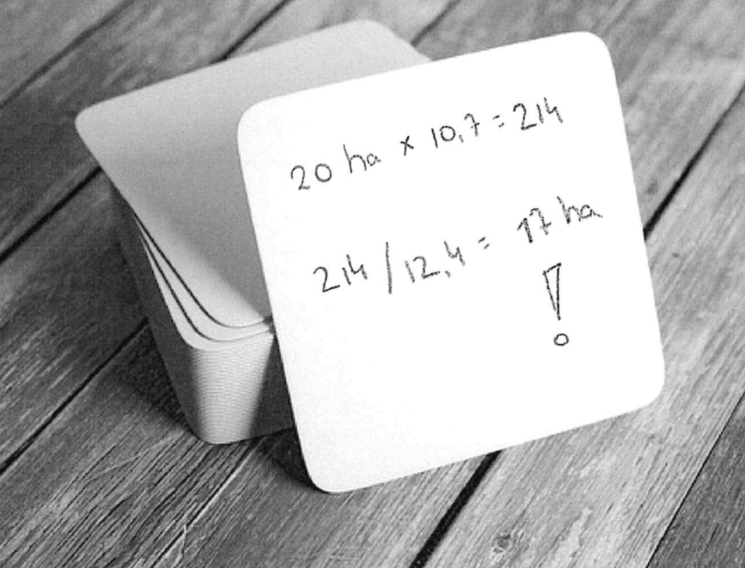 20 ha x 10,7 = 214
214 / 12,4 = 17 ha
!